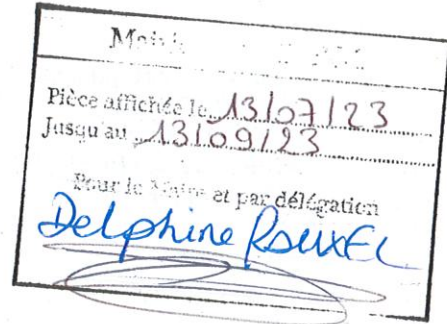 Pièce affichée le 13/07/23
Jusqu'au 13/09/23
Pour le Maire et par délégation
Delphine ROUXEL